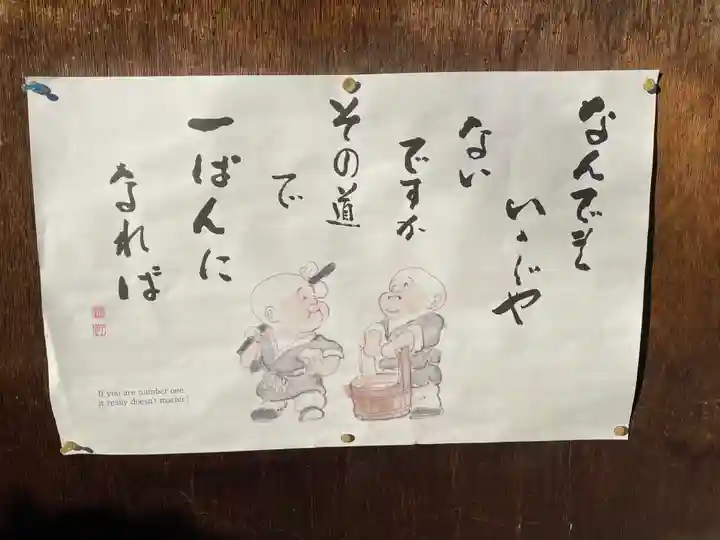 なんでも
いゝじゃ
ない
ですか
その道
で
一ばんに
なれば
If you are number one,
it really doesn't matter!